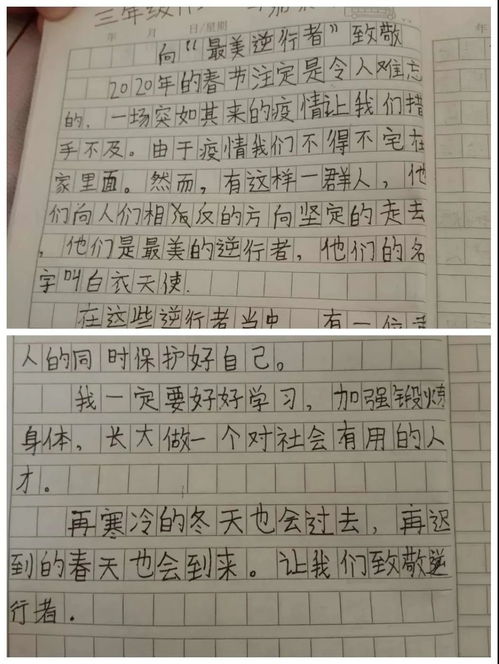 三年级
年 月 日/星期
向“最美逆行者”致敬
2020年的春节注定是令人难忘
的，一场突如其来的疫情让我们措
手不及。由于疫情我们不得不宅在
家里面。然而，有这样一群人，他
们向人们相反的方向坚定的走去
，他们是最美的逆行者，他们的名
字叫白衣天使．
在这些逆行者当中，有一位
人的同时保护好自己。
我一定要好好学习，加强锻炼
身体，长大做一个对社会有用的人
才。
再寒冷的冬天也会过去，再迟
到的春天也会到来。让我们致敬逆
行者．